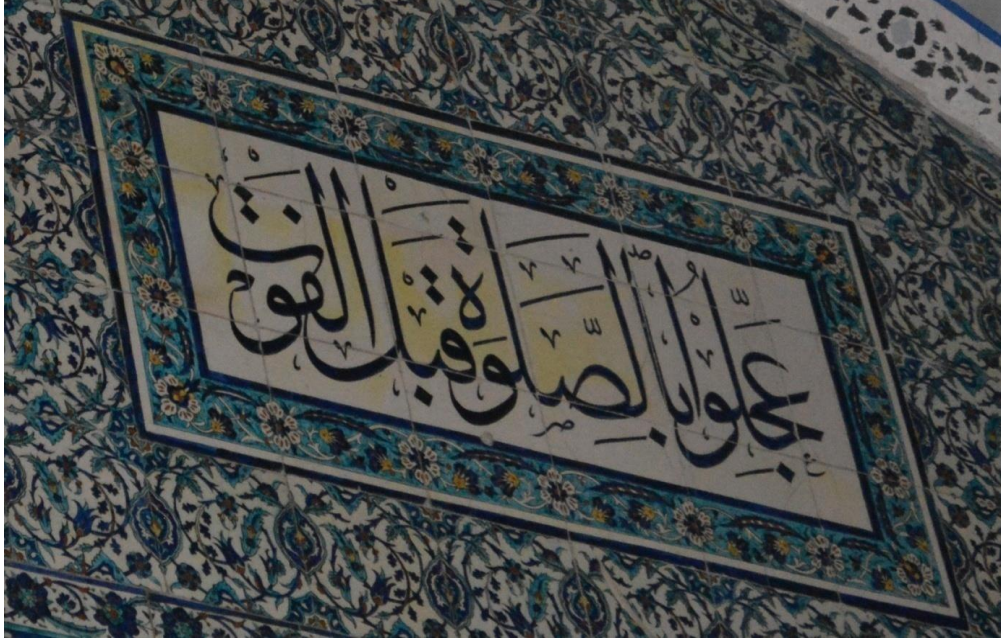 عَجِّلُوا بِالصَّلٰوةِ قَبْلَ الْفَوْتِ